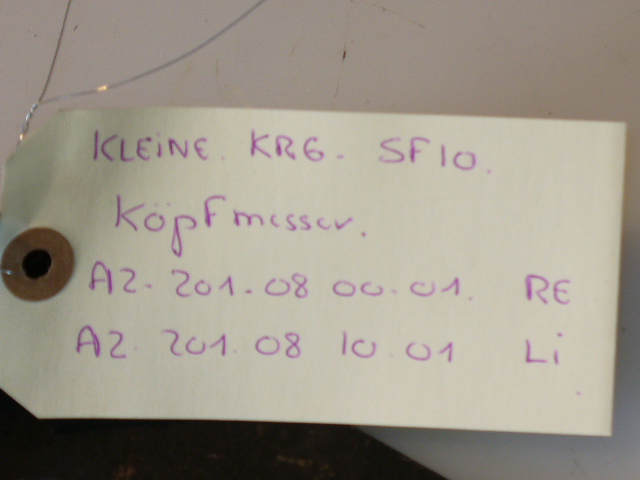 KLEINE. KRG. SF10.
Köpfmesser.
A2. 201.08 00.01. RE
A2 201.08 10.01 Li